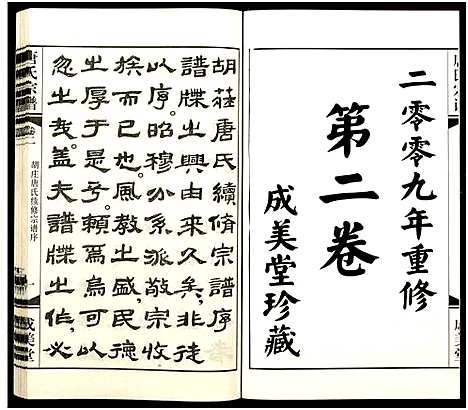 二零零九年重修
第二卷
成美堂珍藏
胡莊唐氏續脩宗譜序
譜牒之興由来久矣非徒
以序昭穆分系派敬宗收
族而已也風教之盛民德
之厚于是賴焉烏可
忽之哉蓋夫譜牒之作必
唐氏宗譜
卷二
胡庄唐氏续修宗谱序
一
成美堂